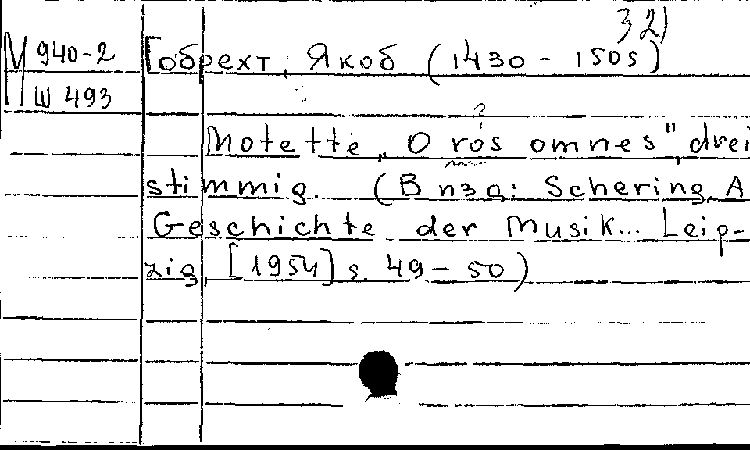 32)
М 940-2 Гобрехт, Якоб (1430 - 1505)
Ш 493
?
Motette „O rós omnes", drei
stimmig. (В изд: Schering, A
Geschichte der Musik... Leip-
zig, [1954] s. 49-50)